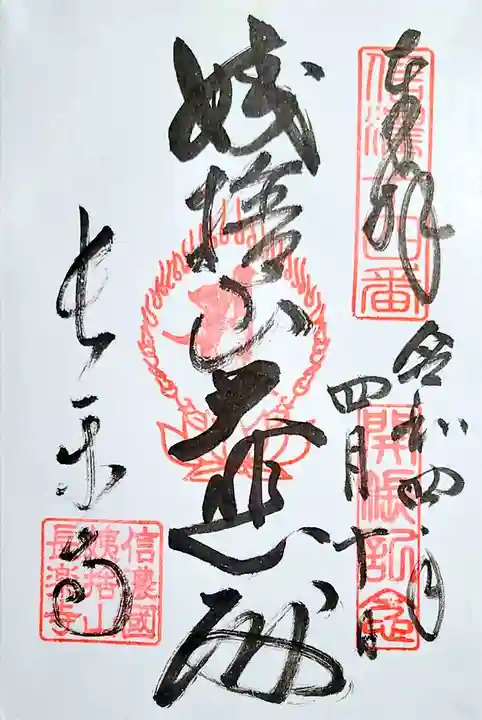 奉拝
信濃十四番
令和四年
四月十日
開帳記念
姨捨山大悲
長楽寺
信濃國
姨捨山
長楽寺